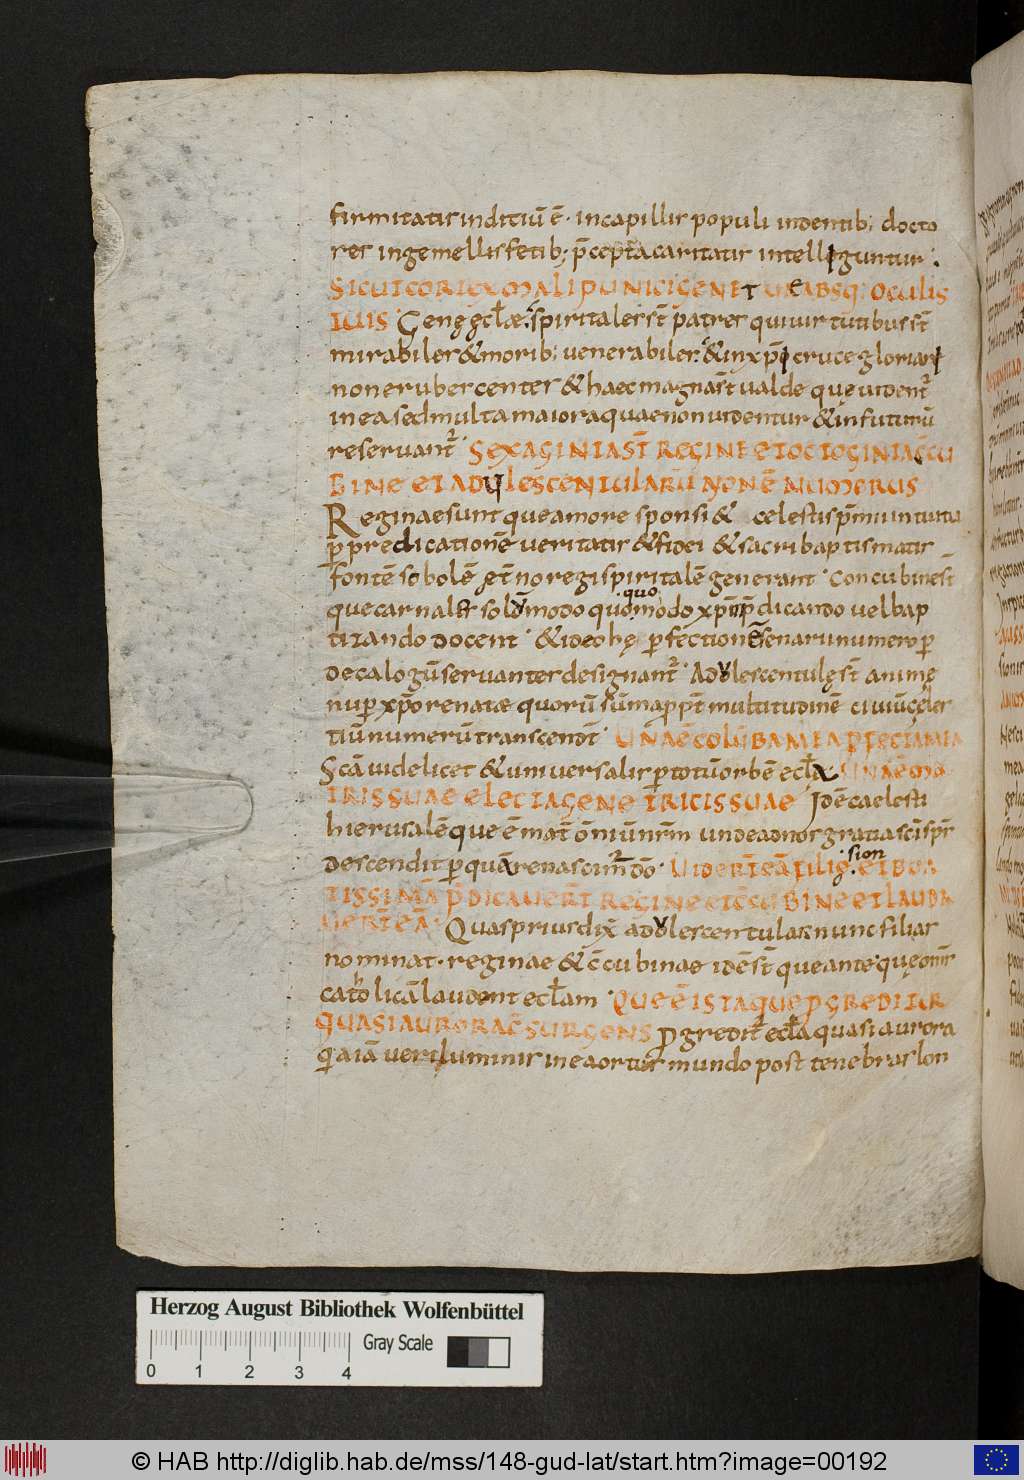 firmitatis inditiū ē· in capillis populi in dentib; docto
res in gemellis fetib; p̄cepta caritatis intelleguntur.
SICUT CORTEX MALI PUNICI GENE TUE ABSQ; OCULIS
TUIS Genę ęccłae spiritales st̄ patres qui uirtutibus st̄
mirabiles & morib; uenerabiles & in xp̄i cruce gloriari
non erubescentes & haec magna st̄ ualde quę uident̄
in ea sed multa maiora quae non uidentur & in futurū
reseruant̄ SEXAGINTA ST̄ REGINE ET OCTOGINTA C̄CU
BINE ET ADULESCENTULARŪ NON Ē NUMERUS
Reginae sunt que amore sponsi & celestis p̄mii intuitu
p̱ predicationē ueritatis & fidei & sacri baptismatis
fontē sobolē ęt̄no regi spiritalē generant Concubine st̄
que carnales solūmodo quomodo xp̄m p̄dicando uel bap
quo
tizando docent & ideo hę p̱fectionē senarii numero p̱
decalogū seruanter designant̄ Adulescentulę st̄ animę
nup̱ xp̄o renatae quorū sūma p̱pt̄ multitudinē ciuiū cęles
tiū numerū transcendit UNA Ē COLŪBA MEA P̱FECTA MEA
Scā uidelicet & uniuersalis p̱ totū orbē eccła UNA Ē MA
TRIS SUAE ELECTA GENETRICIS SUAE Idē caelesti
hierusalē que ē mat̄ omniū nr̄m unde ad nos gratia sc̄i sp̄s
descendit p̱ quā renascimur dō UIDERT̄ EĀ FILIĘ sion ET BEA
TISSIMĀ P̄DICAUERT̄ REGINE ET C̄CUBINE ET LAUDA
UERT̄ EĀ Quas prius dix̄ adulescentulas nunc filias
nominat· reginae & c̄cubinae idē st̄ que ante quę om̄s
catholicā laudent eccłam QUE Ē ISTA QUE P̱GREDITUR
QUASI AURORA C̄SURGENS P̱gredit̄ eccła quasi aurora
q̄a iā ueri luminis in ea ortus mundo post tenebras lon
Herzog August Bibliothek Wolfenbüttel
Gray Scale
0 1 2 3 4
© HAB http://diglib.hab.de/mss/148-gud-lat/start.htm?image=00192